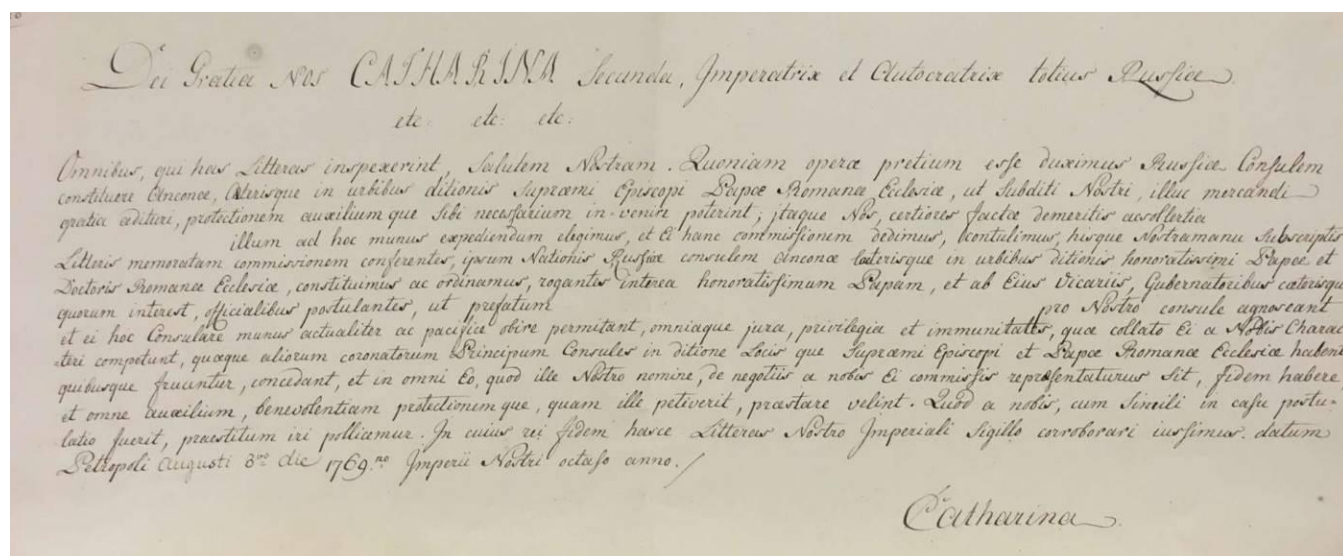 Dei Gratia Nos CATHARINA Secunda, Imperatrix et Autocratrix totius Russiæ
etc: etc: etc:
Omnibus, qui has Litteras inspexerint, Salutem Nostram. Quoniam operæ pretium esse duximus Russiæ Consulem
constituere Anconæ, Cæterisque in urbibus ditionis Supræmi Episcopi Papæ Romanæ Eclesiæ, ut Subditi Nostri, illuc mercandi
gratia adituri, protectionem auxilium que Sibi necessarium in-venire poterint; itaque Nos, certiores factæ demeritis acsollertia
illum ad hoc munus expediendum elegimus, et Ei hanc commissionem dedimus, contulimus, hisque Nostramanu Subscriptis
Litteris memoratam commissionem conferentes, ipsum Nationis Russiæ consulem Anconæ cæterisque in urbibus ditionis honoratissimi Papæ et
Doctoris Romanæ Eclesiæ, constituimus ac ordinamus, rogantes interea honoratissimum Papam, et ab Eius Vicariis, Gubernatoribus cæterisque
quorum interest, officialibus postulantes, ut prefatum pro Nostro consule agnoscant
et ei hoc Consulare munus actualiter ac pacifice obire permitant, omniaque jura, privilegia et immunitates, quæ collato Ei a Nobis Charac-
teri competunt, quæque aliorum coronatorum Principum Consules in ditione Locis que Supræmi Episcopi et Papæ Romanæ Ecclesiæ habent
quibusque fruuntur, concedant, et in omni Eo, quod ille Nostro nomine, de negotiis a nobis Ei commissis repræsentaturus Sit, fidem habere
et omne auxilium, benevolentiam protectionem que, quam ille petiverit, præstare velint. Quod a nobis, cum Simili in casu postu-
latio fuerit, praestitum iri pollicemur. In cuius rei fidem hasce Litteras Nostro Imperiali Sigillo corroborari iussimus. datum
Petropoli Augusti 3.no die 1769.no Imperii Nostri octavo anno./
Catharina